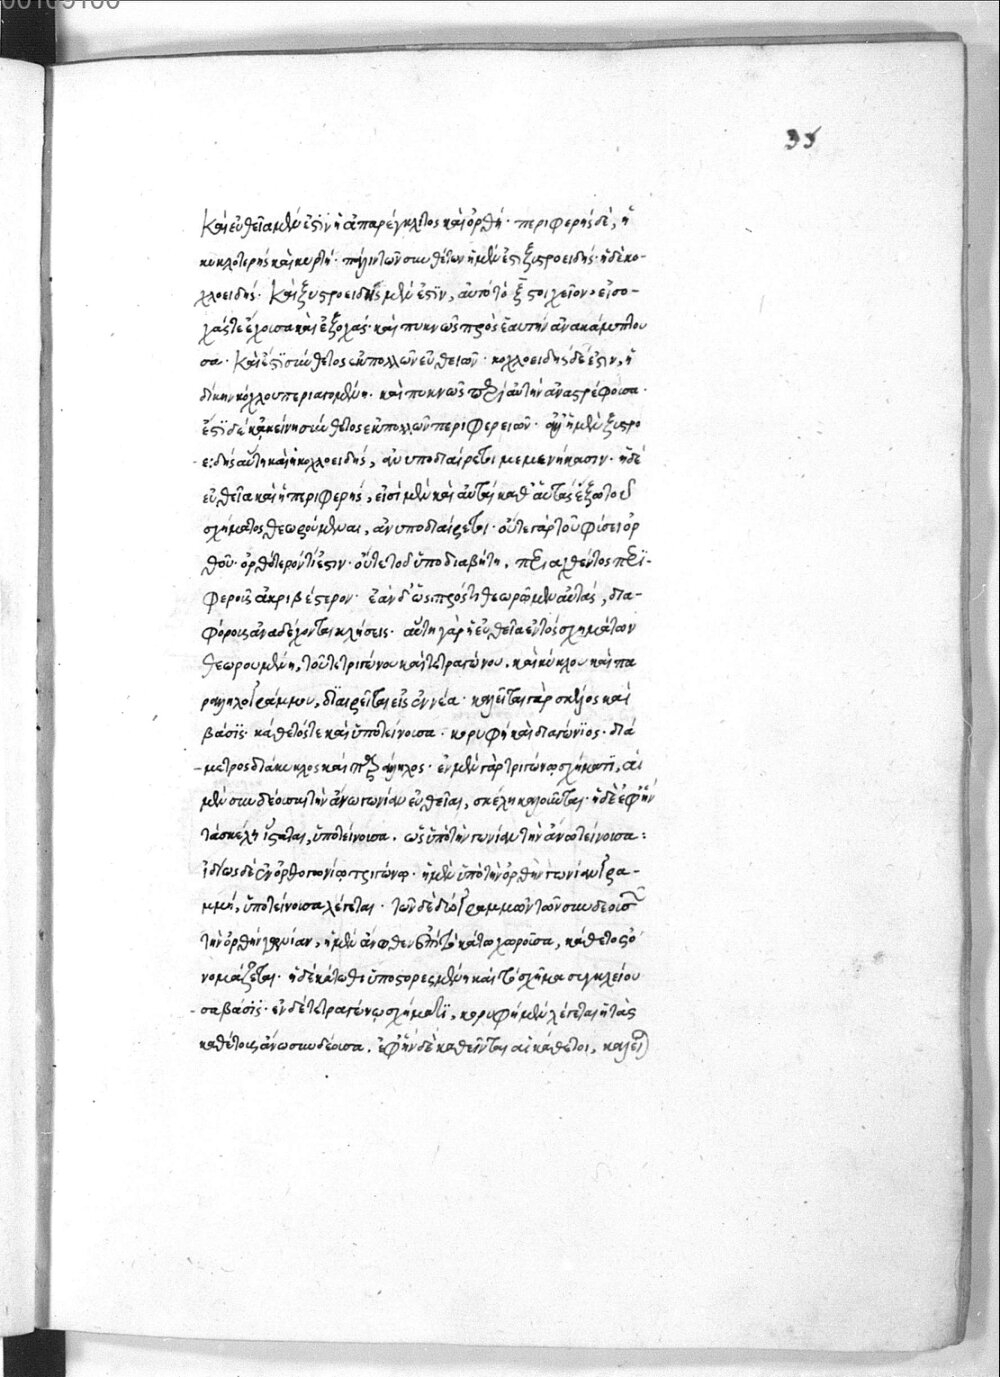 00109100
35
Καὶ εὐθεῖα μέν ἐστιν ἡ ἀπαρέγκλιτος καὶ ὀρθή· περιφερὴς δὲ, ἡ
κυκλοτερὴς καὶ κυρτή· πάλιν τῶν συνθέτων ἡ μέν ἐστι ξυστροειδής· ἡ δὲ κο-
χλοειδής· Καὶ ξυστροειδὴς μέν ἐστιν,
χάς τε ἔχουσα καὶ ἐξοχάς· καὶ πυκνῶς πρὸς ἑαυτὴν ἀνακάμπτου
σα· Καὶ ἔστι σύνθετος ἐκ πολλῶν εὐθειῶν· κοχλοειδὴς δέ ἐστιν, ἡ
δίκην κόχλου περιαγομένη· καὶ πυκνῶς περὶ αὑτὴν ἀναστρέφουσα·
ἔστι δὲ κἀκείνη σύνθετος ἐκ πολλῶν περιφερειῶν· ἀλλ' ἡ μὲν ξυστρο
ειδὴς αὕτη καὶ ἡ κοχλοειδής, ἀνυποδιαίρετοι μεμενήκασιν· ἡ δὲ
εὐθεῖα καὶ ἡ περιφερής, εἰσὶ μὲν καὶ αὐταὶ καθ' αὑτὰς ἔξω τοῦ
σχήματος θεωρούμεναι, ἀνυποδιαίρετοι· οὔτε γὰρ τοῦ φύσει ὀρ
θοῦ· ὀρθότερόν τί ἐστιν· οὔτε τοῦ ὑπὸ διαβήτη, περιαχθέντος περι-
φεροῦς ἀκριβέστερον· ἐὰν δ' ὡς πρός τι θεωρῶμεν αὐτάς, δια-
φόρους ἀναδέχονται κλήσεις· αὕτη γὰρ ἡ εὐθεῖα ἐντὸς σχημάτων
θεωρουμένη, τοῦ τε τριγώνου καὶ τετραγώνου, καὶ κύκλου καὶ πα
ραλληλογράμμου, διαιρεῖται εἰς ἐννέα· καλεῖται γὰρ σκέλος καὶ
βάσις· κάθετός τε καὶ ὑποτείνουσα· κορυφὴ καὶ διαγώνιος· διά
μετρος διάκυκλος καὶ παράλληλος· ἐν μὲν γὰρ τριγώνῳ σχήματι, αἱ
μὲν συνδέουσαι τὴν ἄνω γωνίαν εὐθεῖαι, σκέλη καλοῦνται· ἡ δὲ ἐφ' ἣν
τὰ σκέλη ἵσταται, ὑποτείνουσα· ὡς ὑπὸ τὴν γωνίαν τὴν ἄνω τείνουσα:
ἰδίως δὲ ἐν ὀρθογωνίῳ τριγώνῳ· ἡ μὲν ὑπὸ τὴν ὀρθὴν γωνίαν γρα-
μμή, ὑποτείνουσα λέγεται· τῶν δὲ δύο γραμμῶν τῶν συνδεουσῶν
τὴν ὀρθὴν γωνίαν, ἡ μὲν ἄνωθεν ἐπὶ τὸ κάτω χωροῦσα, κάθετος ὀ
νομάζεται· ἡ δὲ κάτωθι ὑποστορεσμένη καὶ τὸ σχῆμα συγκλείου
σα βάσις· ἐν δὲ τετραγώνῳ σχήματι, κορυφὴ μὲν λέγεται ἡ τὰς
καθέτους ἄνω συνδέουσα. ἐφ' ἣν δὲ κάθηνται αἱ κάθετοι, καλεῖ